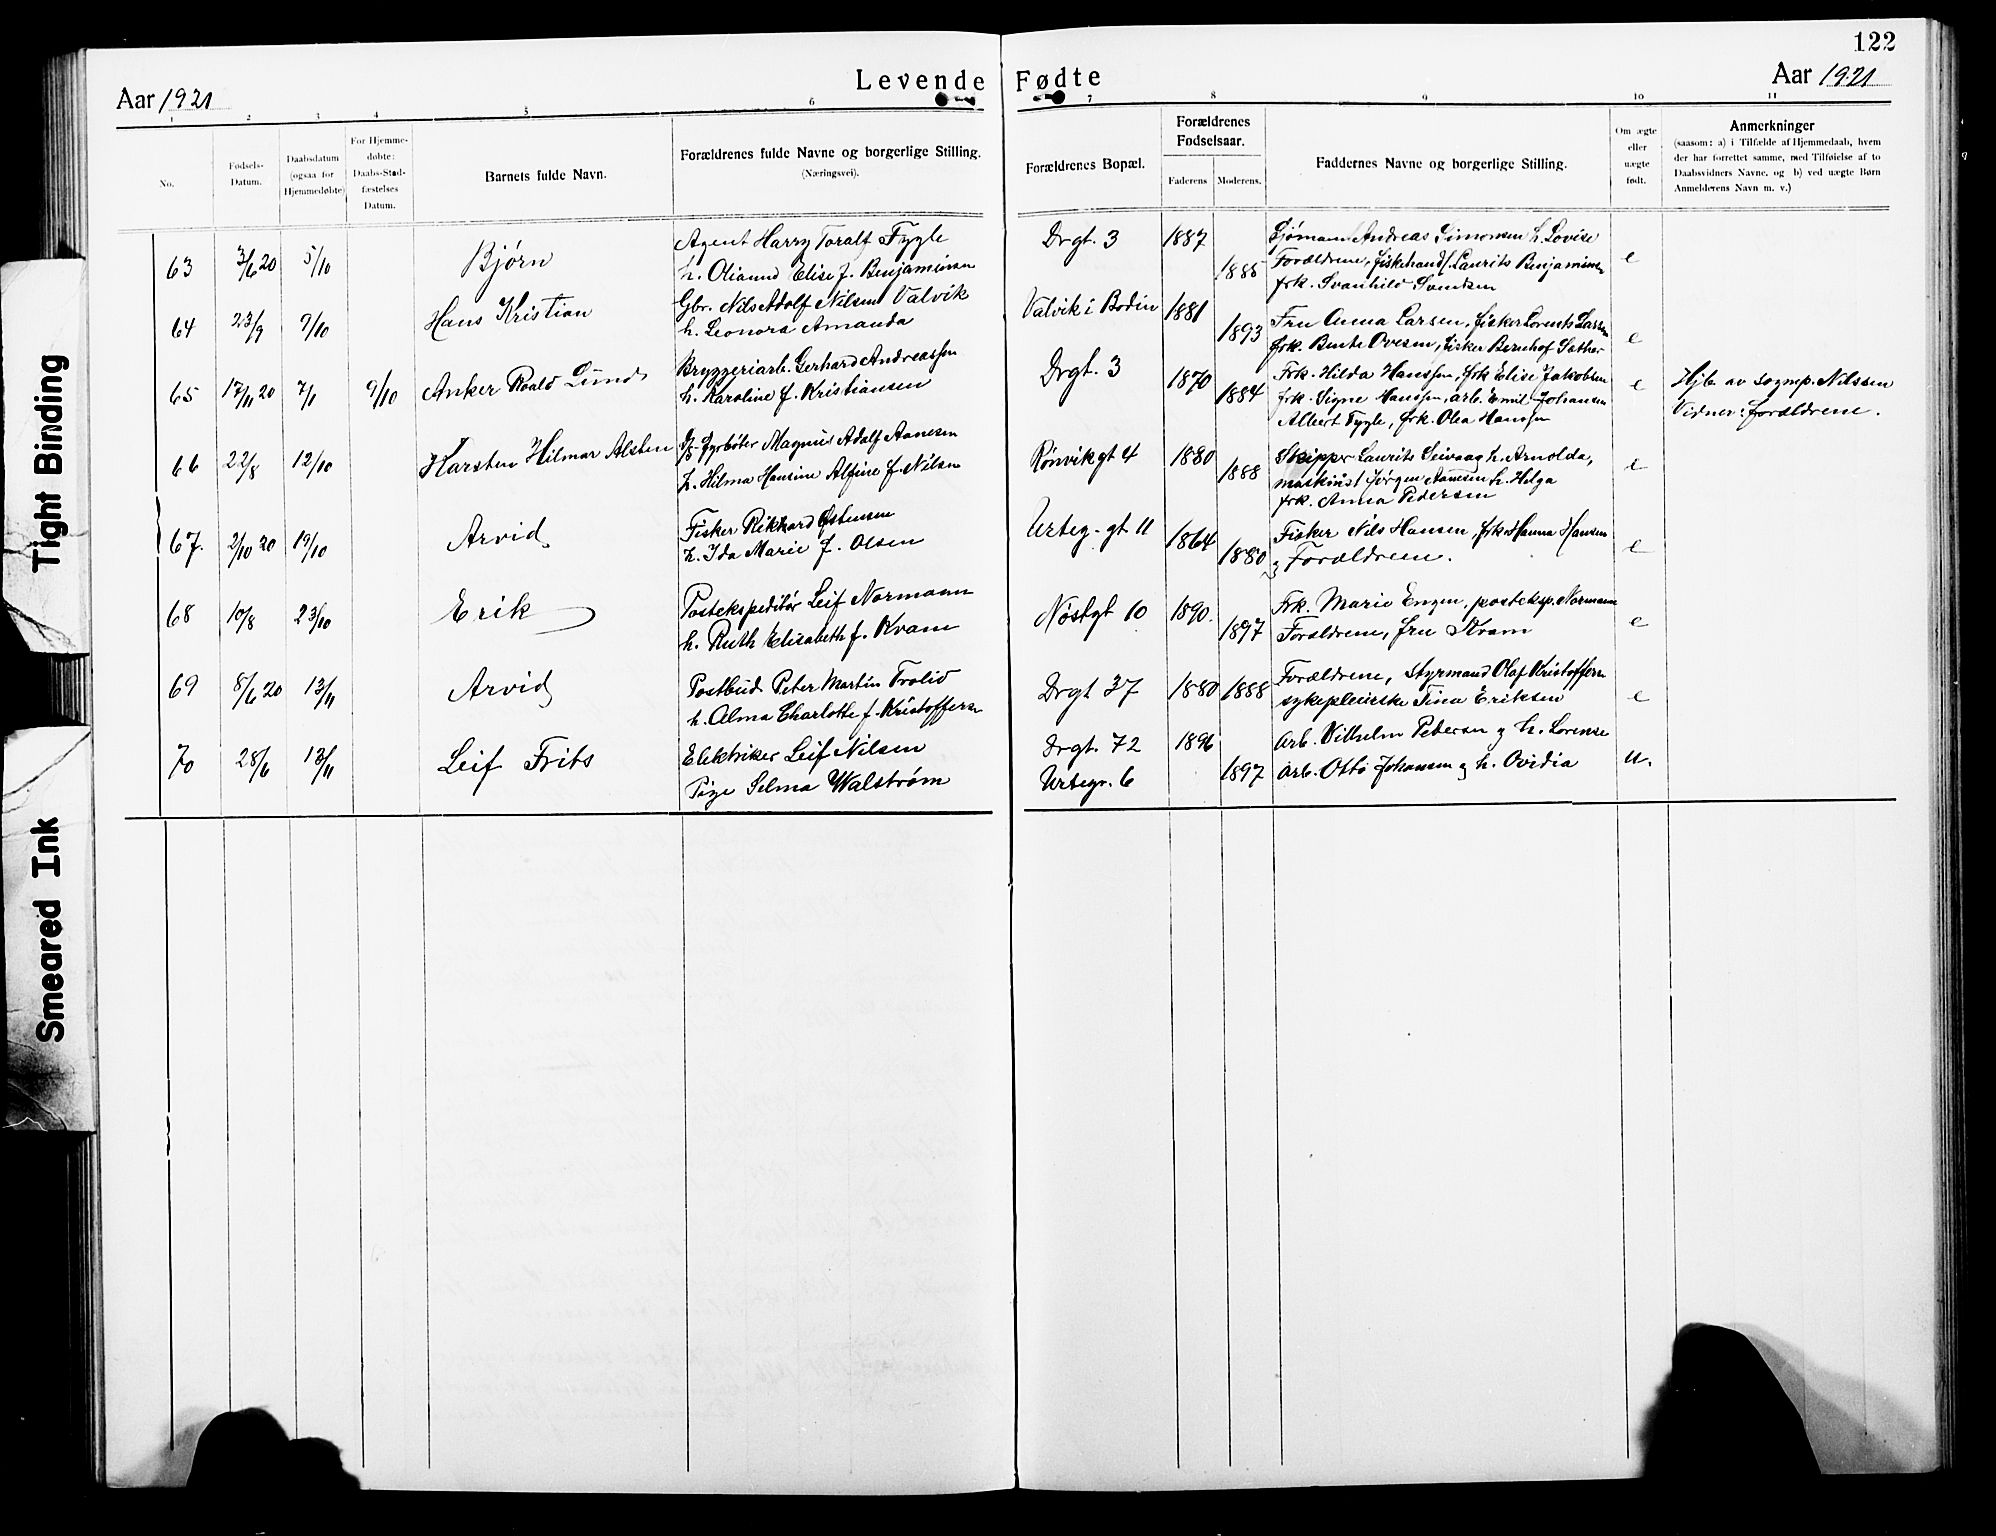 122
Levende Fødte
Aar 1921
Aar 1921
1 2 3 4 5 6 7 8 9 10 11
No.
Fødsels-
Datum.
Daabsdatum
(ogsaa for
Hjemmedøbte)
For Hjemme-
døbte:
Daabs-Stad-
fæstelses
Datum.
Barnets fulde Navn.
Forældrenes fulde Navne og borgerlige Stilling.
(Næringsvei).
Forældrenes Bopæl.
Forældrenes
Fødselsaar.
Faderens
Moderens.
Faddernes Navne og borgerlige Stilling.
Om ægte
eller
uægte
født.
Anmerkninger
(saasom: a) i Tilfælde af Hjemmedaab, hvem
der har forrettet samme, med Tilføielse af to
Daabsvidners Navne, og b) ved uægte Børn
Anmelderens Navn m. v.)
63 3/6 20 5/10 Bjørn
Agent Harry Toralf Fygle
h. Oliaund Elise f. Benjaminsen
Drgt. 3 1887 1885
Sjømann Andreas Simonsen h. Lovise
Forældrene, fiskehandl. Laurits Benjaminsen
frk. Svanhild Svendsen
e
64 23/9 9/10 Hans Kristian
Gbr. Nils Adolf Nilsen Valvik
h. Leonora Amanda
Valvik i Bodin 1881 1893
Fru Anna Larsen, fisker Lorents Larsen
frk. Bente Ovesen, fisker Bernhof Sather
e
65 17/11 20 7/1 9/10 Anker Roald Lund
Bryggeriarb. Gerhard Andreassen
h. Karoline f. Kristiansen
Drgt. 3 1870 1884
Frk. Hilda Hanssen, frk Elise Jakobsen
frk. Signe Hanssen, arb. Emil Johansen
Albert Fygle, frk. Olea Hanssen
e
Hjd. av sogmp. Nilssen
Vidner: forældrene.
66 22/8 12/10 Karsten Hilmar Alsten
fyrbøter Magnus Adolf Aanesen
h. Hilma Hansine Alfine f. Nilsen
Rønvikgt 4 1880 1888
Skipper Laurits Seivaag h. Arnolda,
maskinist Jørgen Aanesen h. Helga
frk. Anna Pedersen
e
67. 2/10 20 19/10 Arvid
Fisker Rikhard Østensen
h. Ida Marie f. Olsen
Urteg-gt 11 1864 1880
Fisker Nils Hansen, frk. Hanna Hansen
og Forældrene.
e
68 10/8 23/10 Erik
Postekspeditør Leif Normann
h. Ruth Elisabeth f. Kvam
Nøstgt 10 1890. 1897
Frk. Marie Engen, posteksp. Normann
Forældrene, fru Kvam
e
69 8/6 20 13/11 Arvid
Postbud Peter Martin Trolid
h. Alma Charlotte f. Kristoffersen
Drgt 37 1880 1888
Forældrene, Styrmand Olaf Kristoffersen
sykepleierske Tina Eriksen
e
70 28/6 13/11 Leif Frits
Elektriker Leif Nilsen
Pige Selma Walstrøm
Drgt. 72 1896
Urtegr. 6 1897
Arb. Vilhelm Petersen og h. Lorense
Arb. Otto Johansen og h. Ovidia
u.
Tight Binding
Smeared Ink